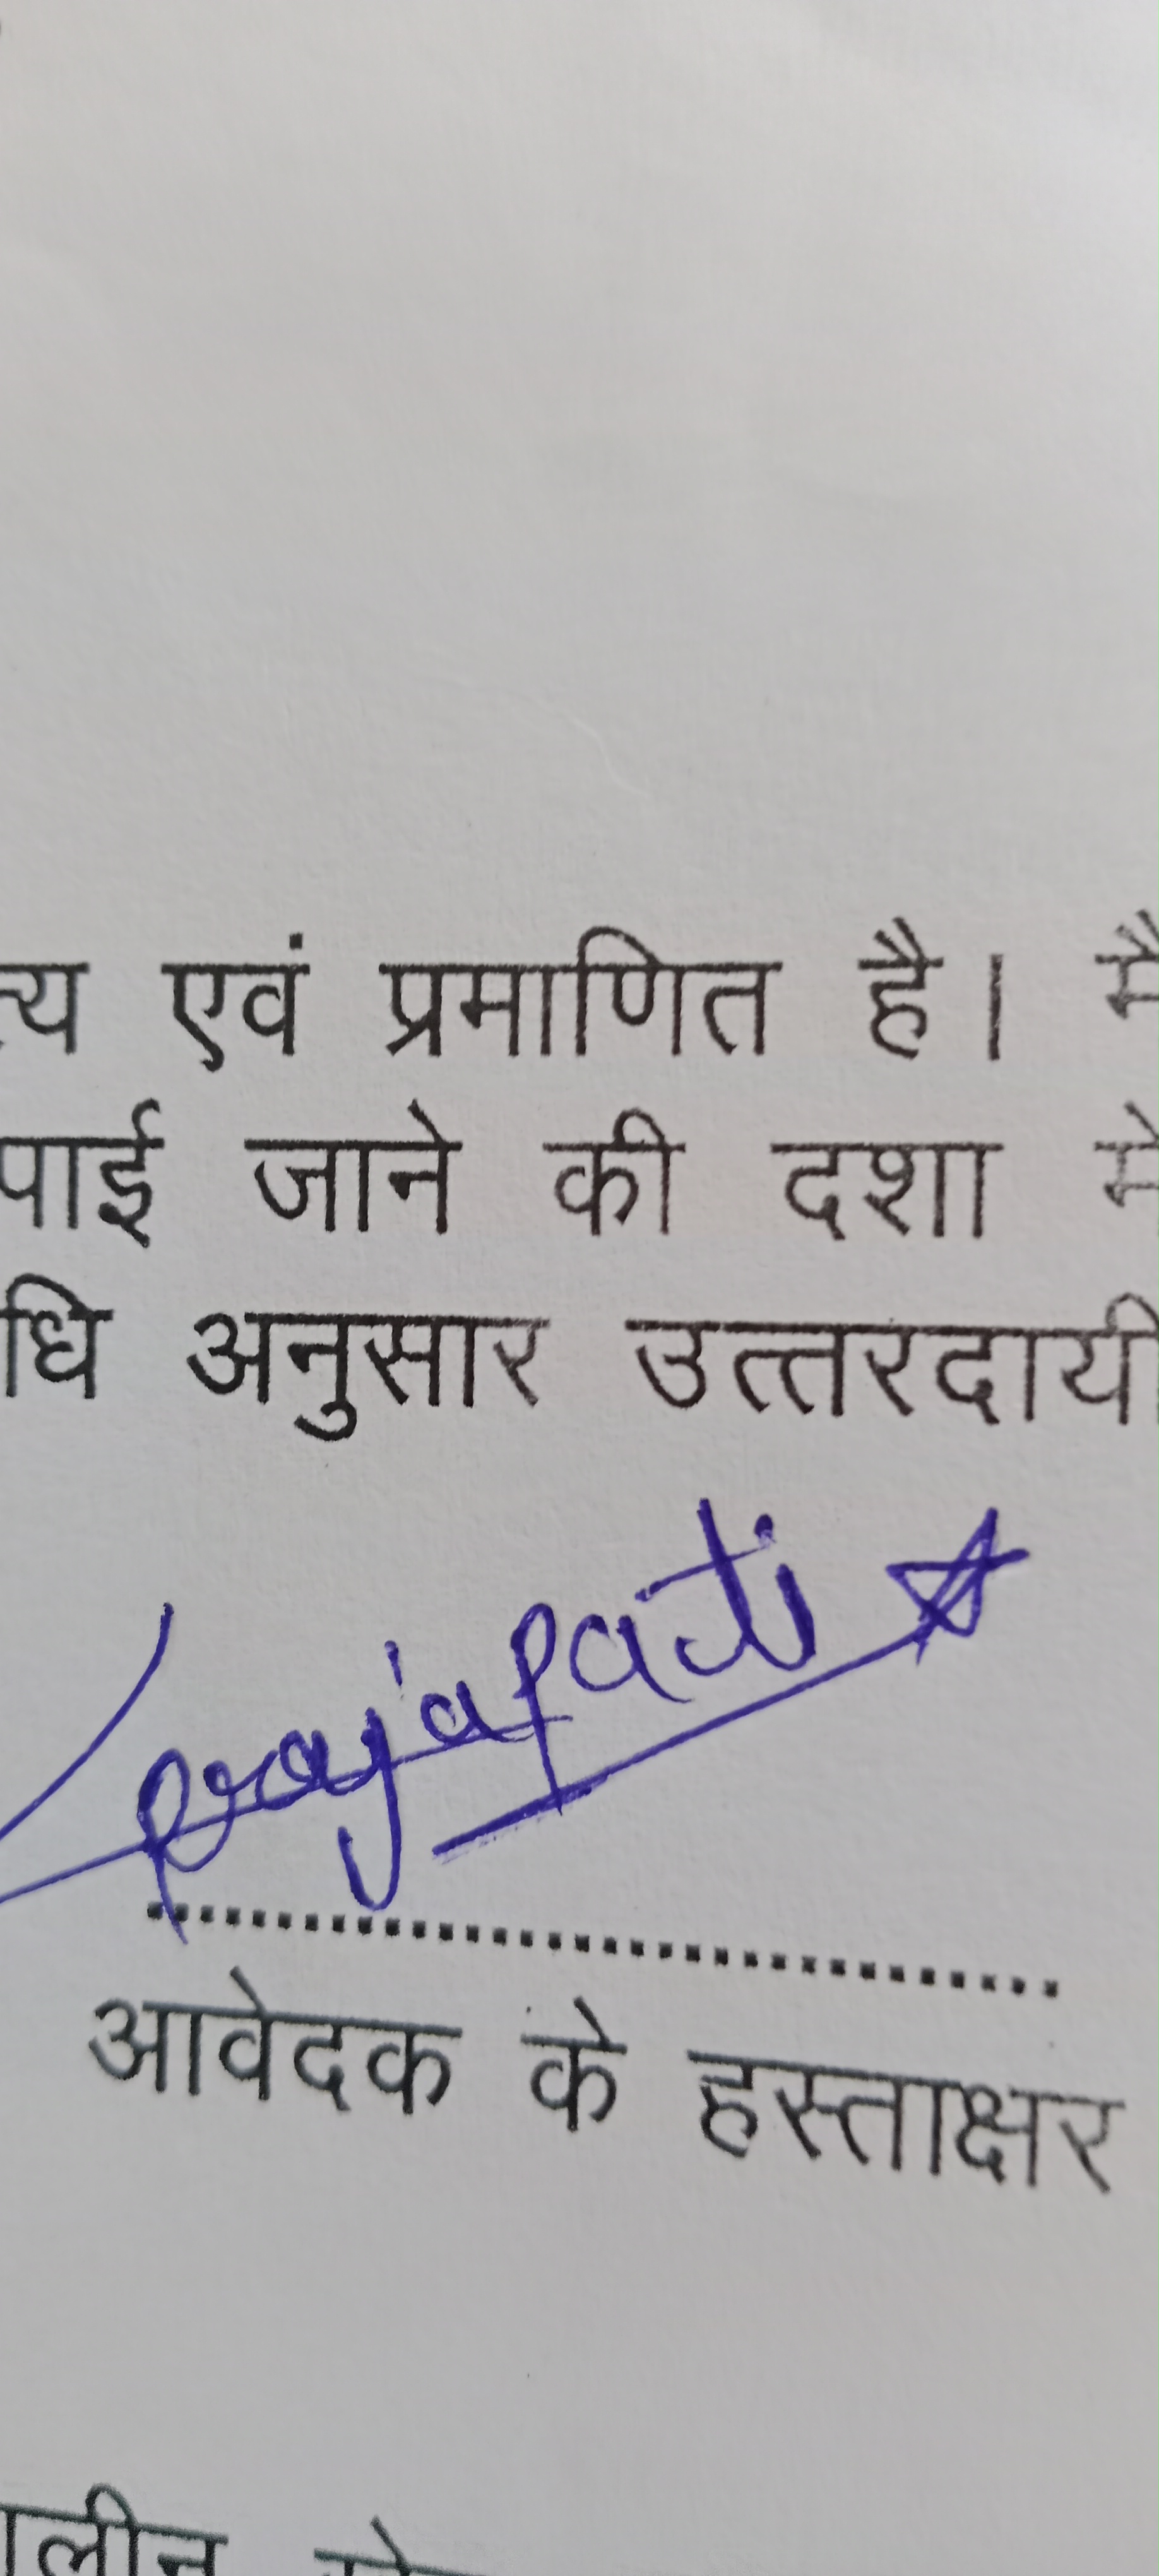 एवं प्रमाणित है।
पाई जाने की दशा
अनुसार उत्तरदायी
Prajapati
आवेदक के हस्ताक्षर